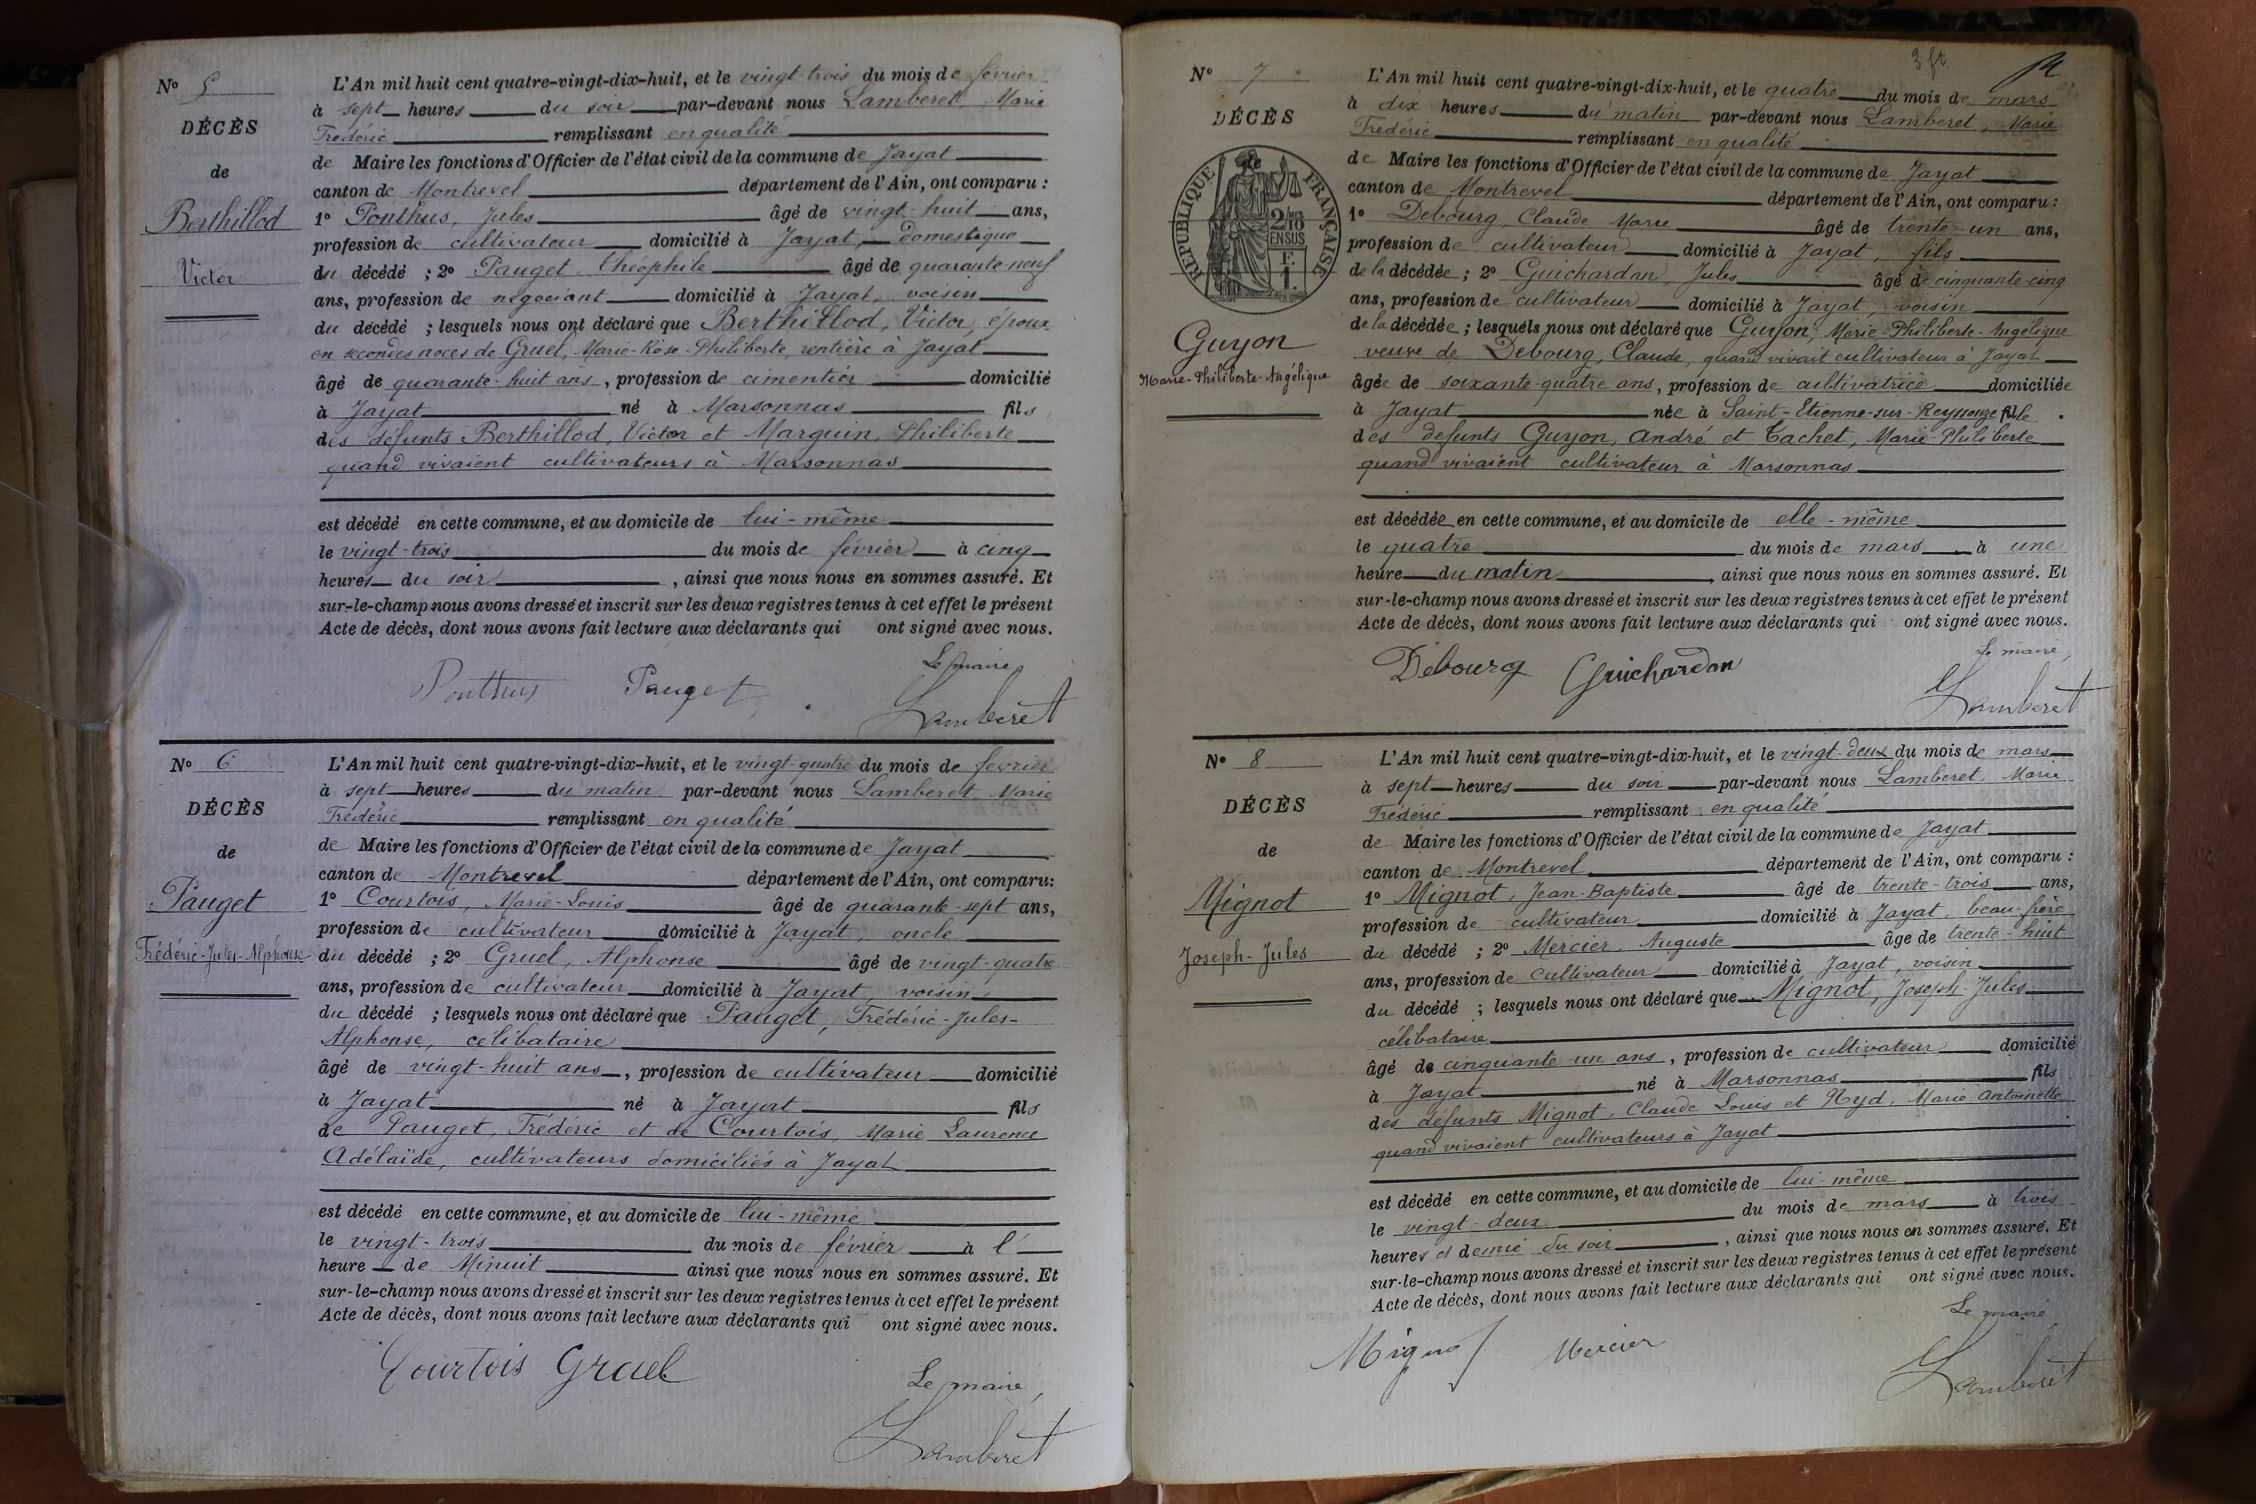 N° 5
DÉCÈS
de
Berthillod
Victor
L'An mil huit cent quatre-vingt-dix-huit, et le vingt-trois du mois de février
à sept heures du soir par-devant nous Lamberet, Marie
Frédéric remplissant en qualité
de Maire les fonctions d'Officier de l'état civil de la commune de Jayat
canton de Montrevel département de l'Ain, ont comparu :
1° Ponthus, Jules âgé de vingt-huit ans,
profession de cultivateur domicilié à Jayat, domestique
du décédé ; 2° Pauget Théophile âgé de quarante-neuf
ans, profession de négociant domicilié à Jayat, voisin
du décédé ; lesquels nous ont déclaré que Berthillod, Victor, époux
en secondes noces de Gruel, Marie-Rose-Philiberte, rentière à Jayat
âgé de quarante-huit ans, profession de cimentier domicilié
à Jayat né à Marsonnas fils
des défunts Berthillod, Victor et Marguin, Philiberte
quand vivaient cultivateurs à Marsonnas
est décédé en cette commune, et au domicile de lui-même
le vingt-trois du mois de février à cinq
heures du soir, ainsi que nous nous en sommes assuré. Et
sur-le-champ nous avons dressé et inscrit sur les deux registres tenus à cet effet le présent
Acte de décès, dont nous avons fait lecture aux déclarants qui ont signé avec nous.
Le maire,
Ponthus Pauget Lamberet
N° 6
DÉCÈS
de
Pauget
Frédéric-Jules-Alphonse
L'An mil huit cent quatre-vingt-dix-huit, et le vingt-quatre du mois de février
à sept heures du matin par-devant nous Lamberet, Marie
Frédéric remplissant en qualité
de Maire les fonctions d'Officier de l'état civil de la commune de Jayat
canton de Montrevel département de l'Ain, ont comparu:
1° Courtois, Marie-Louis âgé de quarante-sept ans,
profession de cultivateur domicilié à Jayat, oncle
du décédé ; 2° Gruel, Alphonse âgé de vingt-quatre
ans, profession de cultivateur domicilié à Jayat, voisin
du décédé ; lesquels nous ont déclaré que Pauget, Frédéric-Jules-
Alphonse, célibataire
âgé de vingt-huit ans, profession de cultivateur domicilié
à Jayat né à Jayat fils
de Pauget, Frédéric et de Courtois, Marie Laurence
Adélaïde, cultivateurs domiciliés à Jayat
est décédé en cette commune, et au domicile de lui-même
le vingt-trois du mois de février à l'
heure de Minuit ainsi que nous nous en sommes assuré. Et
sur-le-champ nous avons dressé et inscrit sur les deux registres tenus à cet effet le présent
Acte de décès, dont nous avons fait lecture aux déclarants qui ont signé avec nous.
Courtois Gruel
Le maire,
Lamberet
3 ft
N° 7
DÉCÈS
RÉPUBLIQUE FRANÇAISE
2/10
EN SUS
F.
1.
Guyon
Marie-Philiberte-Angélique
L'An mil huit cent quatre-vingt-dix-huit, et le quatre du mois de mars
à dix heures du matin par-devant nous Lamberet, Marie
Frédéric remplissant en qualité
de Maire les fonctions d'Officier de l'état civil de la commune de Jayat
canton de Montrevel département de l'Ain, ont comparu :
1° Debourg, Claude Marie âgé de trente-un ans,
profession de cultivateur domicilié à Jayat, fils
de la décédée ; 2° Guichardan, Jules âgé de cinquante-cinq
ans, profession de cultivateur domicilié à Jayat, voisin
de la décédée ; lesquels nous ont déclaré que Guyon, Marie-Philiberte-Angélique
veuve de Debourg, Claude, quand vivait cultivateur à Jayat
âgée de soixante-quatre ans, profession de cultivatrice domiciliée
à Jayat née à Saint-Etienne-sur-Reyssouze fille
des défunts Guyon, André et Tachet, Marie-Philiberte
quand vivaient cultivateur à Marsonnas
est décédée en cette commune, et au domicile de elle-même
le quatre du mois de mars à une
heure du matin, ainsi que nous nous en sommes assuré. Et
sur-le-champ nous avons dressé et inscrit sur les deux registres tenus à cet effet le présent
Acte de décès, dont nous avons fait lecture aux déclarants qui ont signé avec nous.
Le maire,
Debourg Guichardan Lamberet
N° 8
DÉCÈS
de
Mignot
Joseph-Jules
L'An mil huit cent quatre-vingt-dix-huit, et le vingt-deux du mois de mars
à sept heures du soir par-devant nous Lamberet, Marie
Frédéric remplissant en qualité
de Maire les fonctions d'Officier de l'état civil de la commune de Jayat
canton de Montrevel département de l'Ain, ont comparu :
1° Mignot, Jean-Baptiste âgé de trente-trois ans,
profession de cultivateur domicilié à Jayat, beau-frère
du décédé ; 2° Mercier, Auguste âgé de trente-huit
ans, profession de cultivateur domicilié à Jayat, voisin
du décédé ; lesquels nous ont déclaré que Mignot, Joseph-Jules
célibataire
âgé de cinquante-un ans, profession de cultivateur domicilié
à Jayat né à Marsonnas fils
des défunts Mignot, Claude Louis et Nyd, Marie Antoinette
quand vivaient cultivateurs à Jayat
est décédé en cette commune, et au domicile de lui-même
le vingt-deux du mois de mars à trois
heures et demie du soir, ainsi que nous nous en sommes assuré. Et
sur-le-champ nous avons dressé et inscrit sur les deux registres tenus à cet effet le présent
Acte de décès, dont nous avons fait lecture aux déclarants qui ont signé avec nous.
Le maire
Mignot Mercier Lamberet